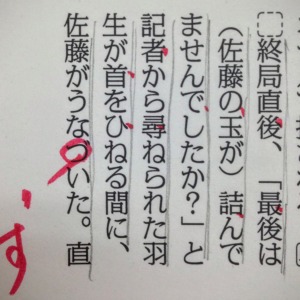 終局直後、「最後は
（佐藤の玉が）詰んで
ませんでしたか？」と
記者から尋ねられた羽
生が首をひねる間に、
佐藤がうなづいた。直
ず